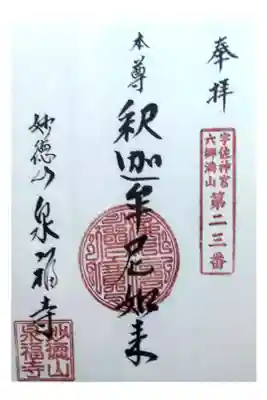 奉拝
宇佐神宮
六郷満山
第二三番
本尊
釈迦牟尼如来
妙徳山泉福寺
妙徳山
泉福寺